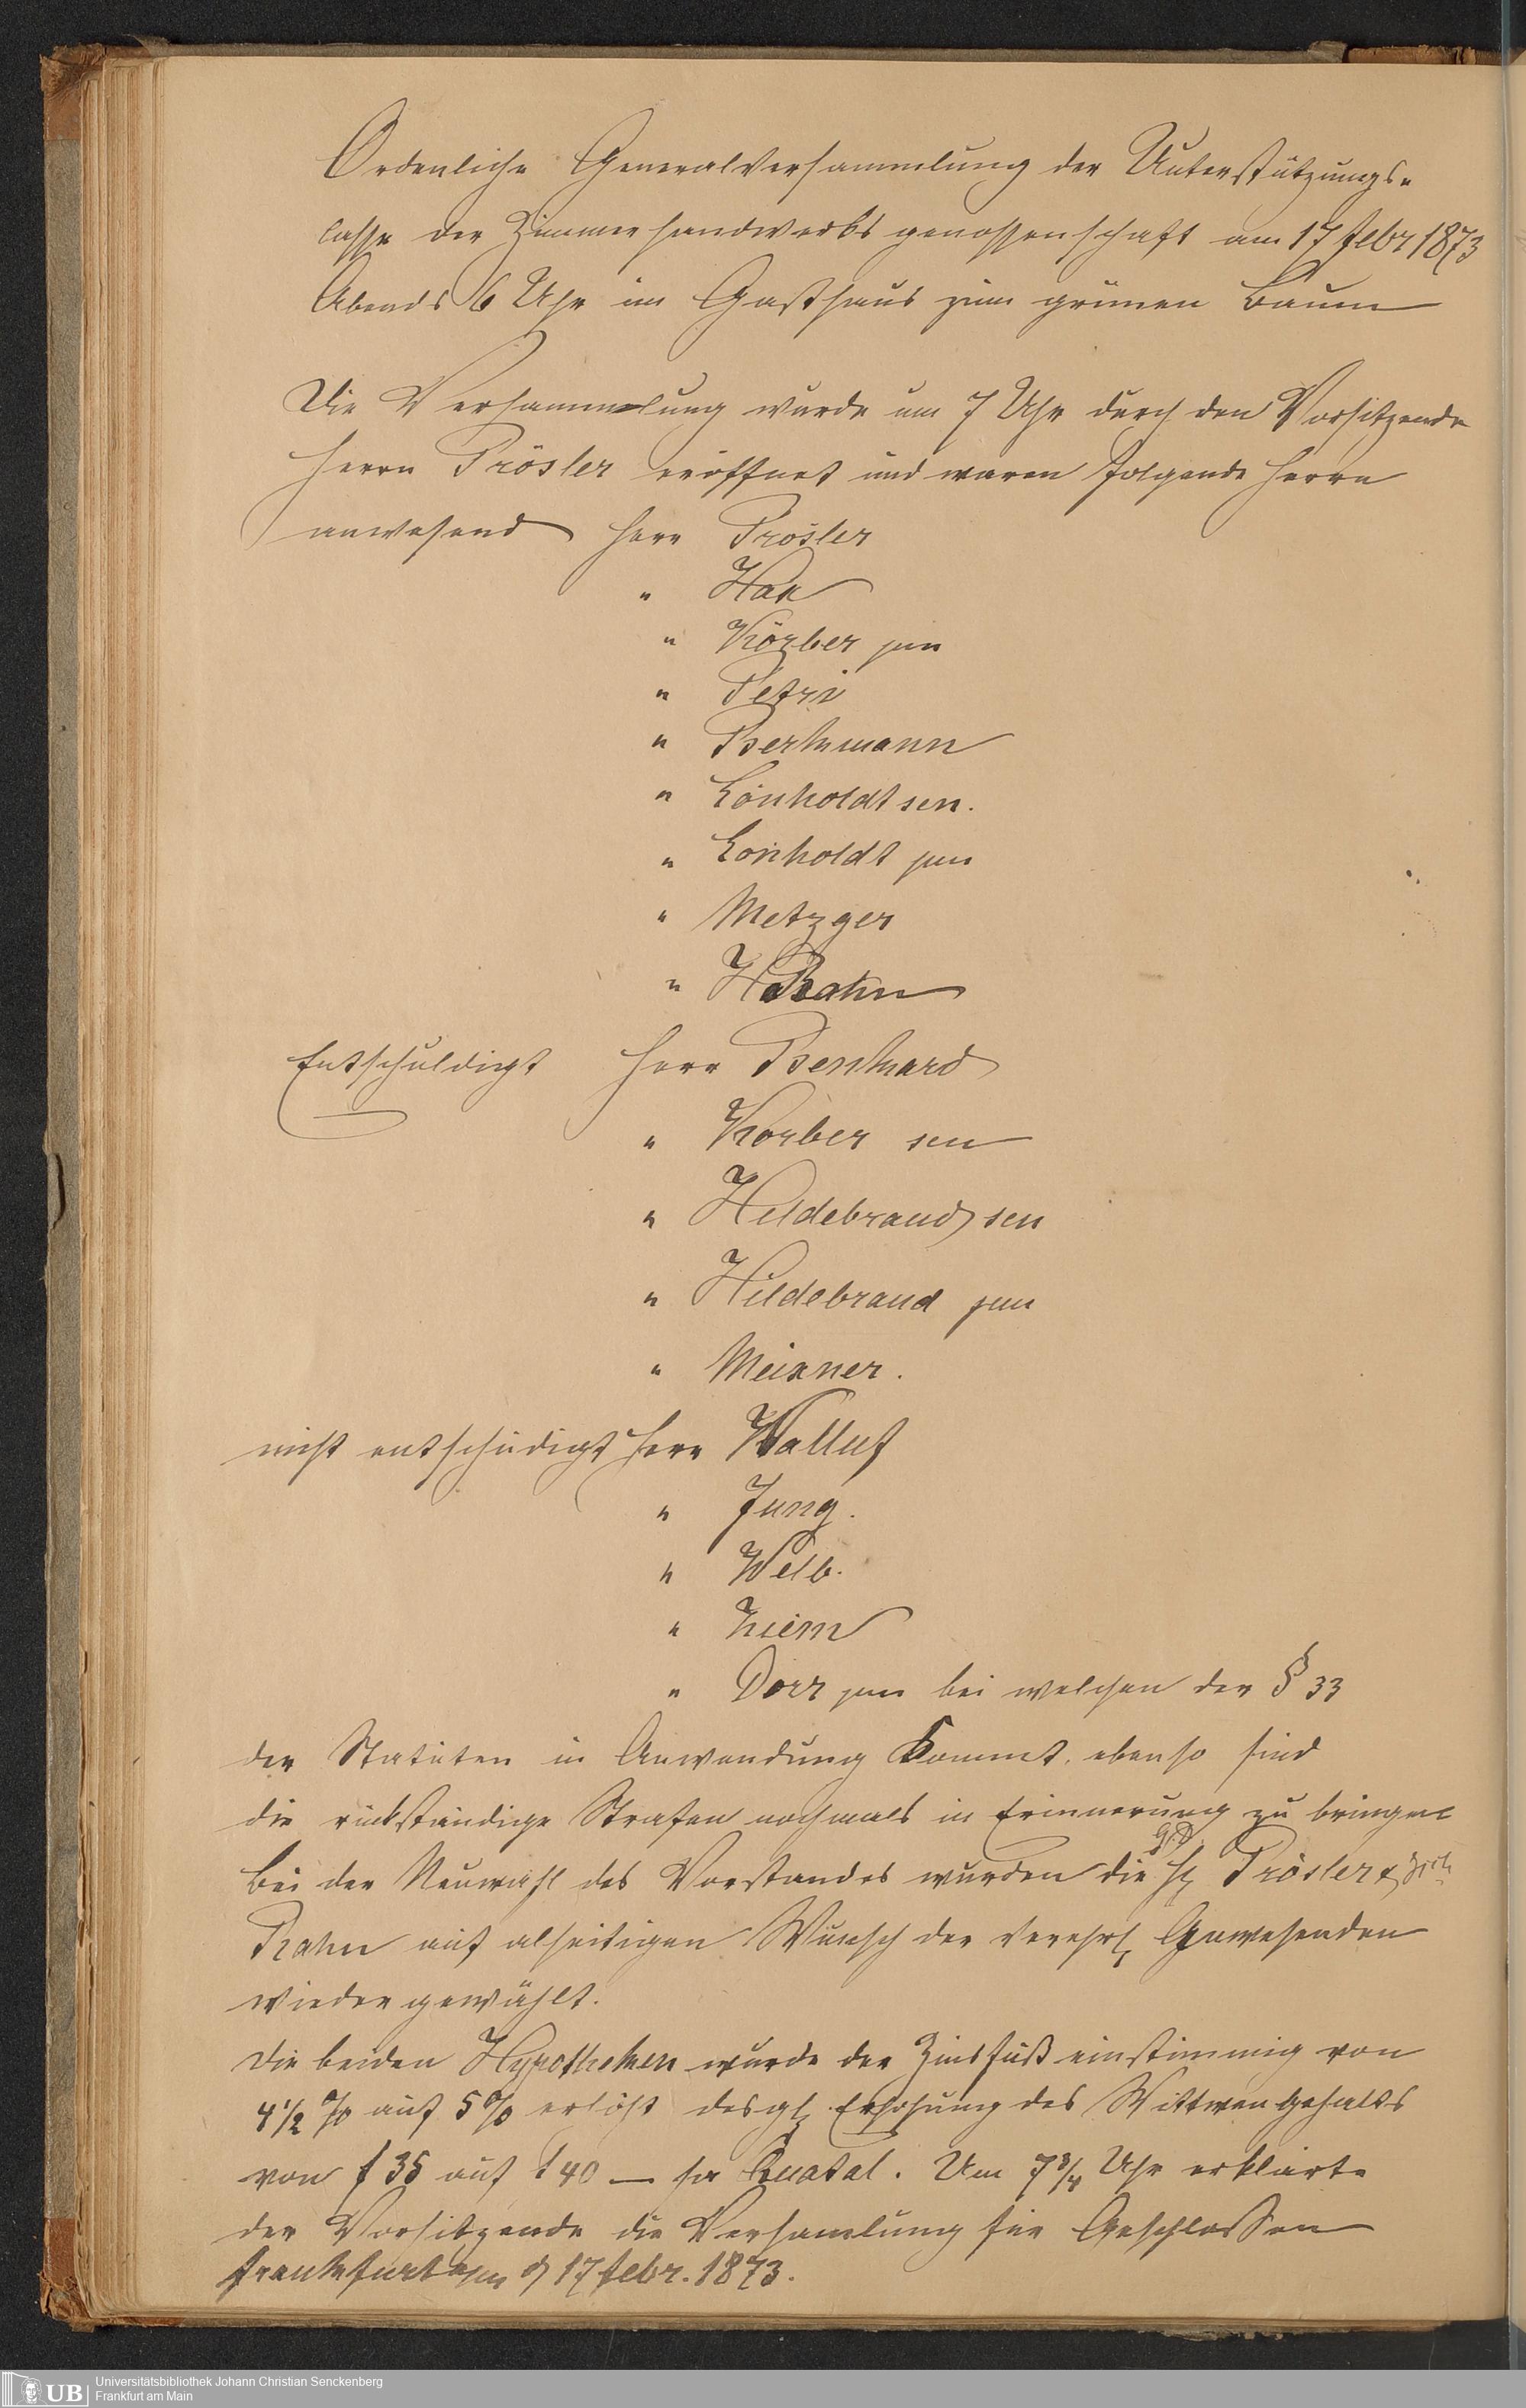 Ordenliche Generalversammlung der Unterstützungs-
casse der Zimmerhandwerks genossenschaft am 17 Febr 1873
Abends 6 Uhr im Gasthaus zum grünen Baum
Die Versammlung wurde um 7 Uhr durch den Vorsitzende
Herrn Prösler eröffnet und waren folgende Herrn
anwesend Herr Prösler
" Hax
" Körber jun
" Petri
" Berkmann
" Lönholdt sen.
" Lönholdt jun
" Metzger
" H Rahn
Entschuldigt Herr Bernhard
" Körber sen
" Hildebrand sen
" Hildebrand jun
" Meixner.
nicht entschudigt Herr Walluf
" Jung.
" Welb.
" Kiem
" Dörr jun bei welchen der § 33
der Statuten in Anwendung Kommt. ebenso sind
die rückständige Strafen nochmals in Erinnerung zu bringen
Bei der Neuwahl des Vorstandes wurden die H Prösler &
Rahn auf alseitigen Wunsch der verehrl Anwesenden
wieder gewählt.
Die beiden Hypotheken wurde der Zinsfuß einstimmig von
4 1/2 % auf 5 % erhöht desgl Erhöhung des Wittwen Gehalts
von f 35 auf f 40 — für Quatal. Um 7 3/4 Uhr erklärte
der Vorsitzende die Versamlung für Geschlossen
Frankfurt a/m d 17 Febr. 1873.
UB
Universitätsbibliothek Johann Christian Senckenberg
Frankfurt am Main